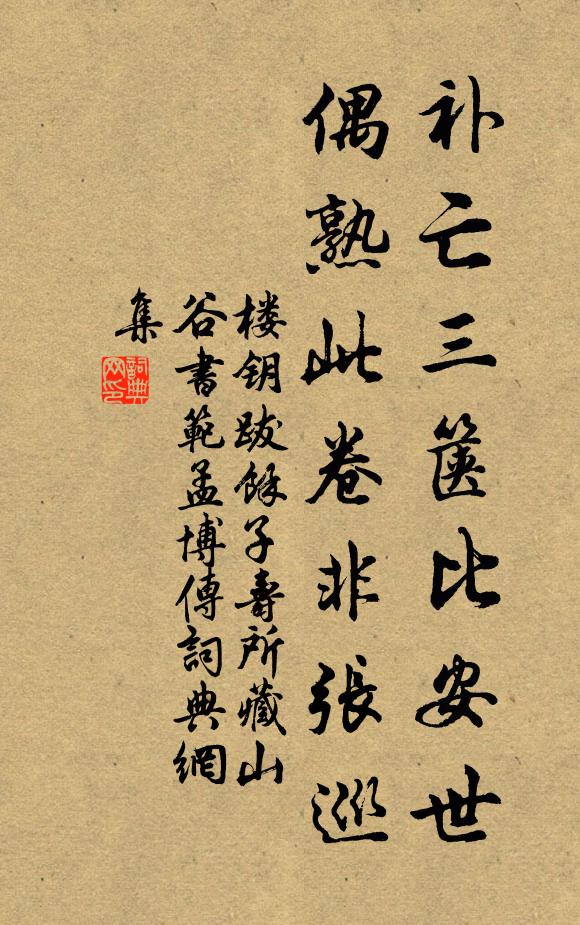 补亡三箧比安世
偶熟此卷非張巡
楼钥跋餘子壽所藏山
谷書範孟博傳詞典網
集
詞典
网印